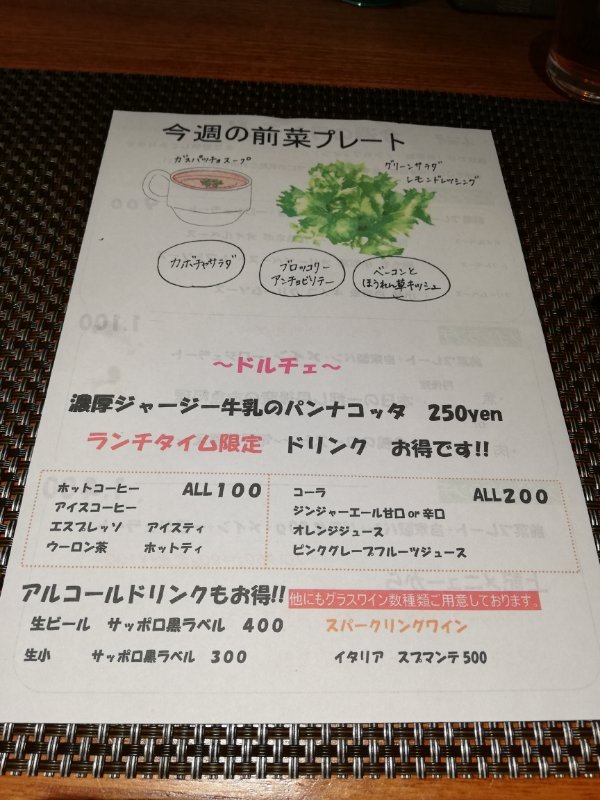 今週の前菜プレート
ガスパッチョスープ
グリーンサラダ
レモンドレッシング
カボチャサラダ
ブロッコリー
アンチョビソテー
ベーコンと
ほうれん草キッシュ
～ドルチェ～
濃厚ジャージー牛乳のパンナコッタ 250yen
ランチタイム限定 ドリンク お得です!!
ホットコーヒー ALL100
アイスコーヒー
エスプレッソ アイスティ
ウーロン茶 ホットティ
コーラ ALL200
ジンジャーエール甘口or辛口
オレンジジュース
ピンクグレープフルーツジュース
アルコールドリンクもお得!!
他にもグラスワイン数種類ご用意しております。
生ビール サッポロ黒ラベル 400
スパークリングワイン
生小 サッポロ黒ラベル 300
イタリア スプマンテ500